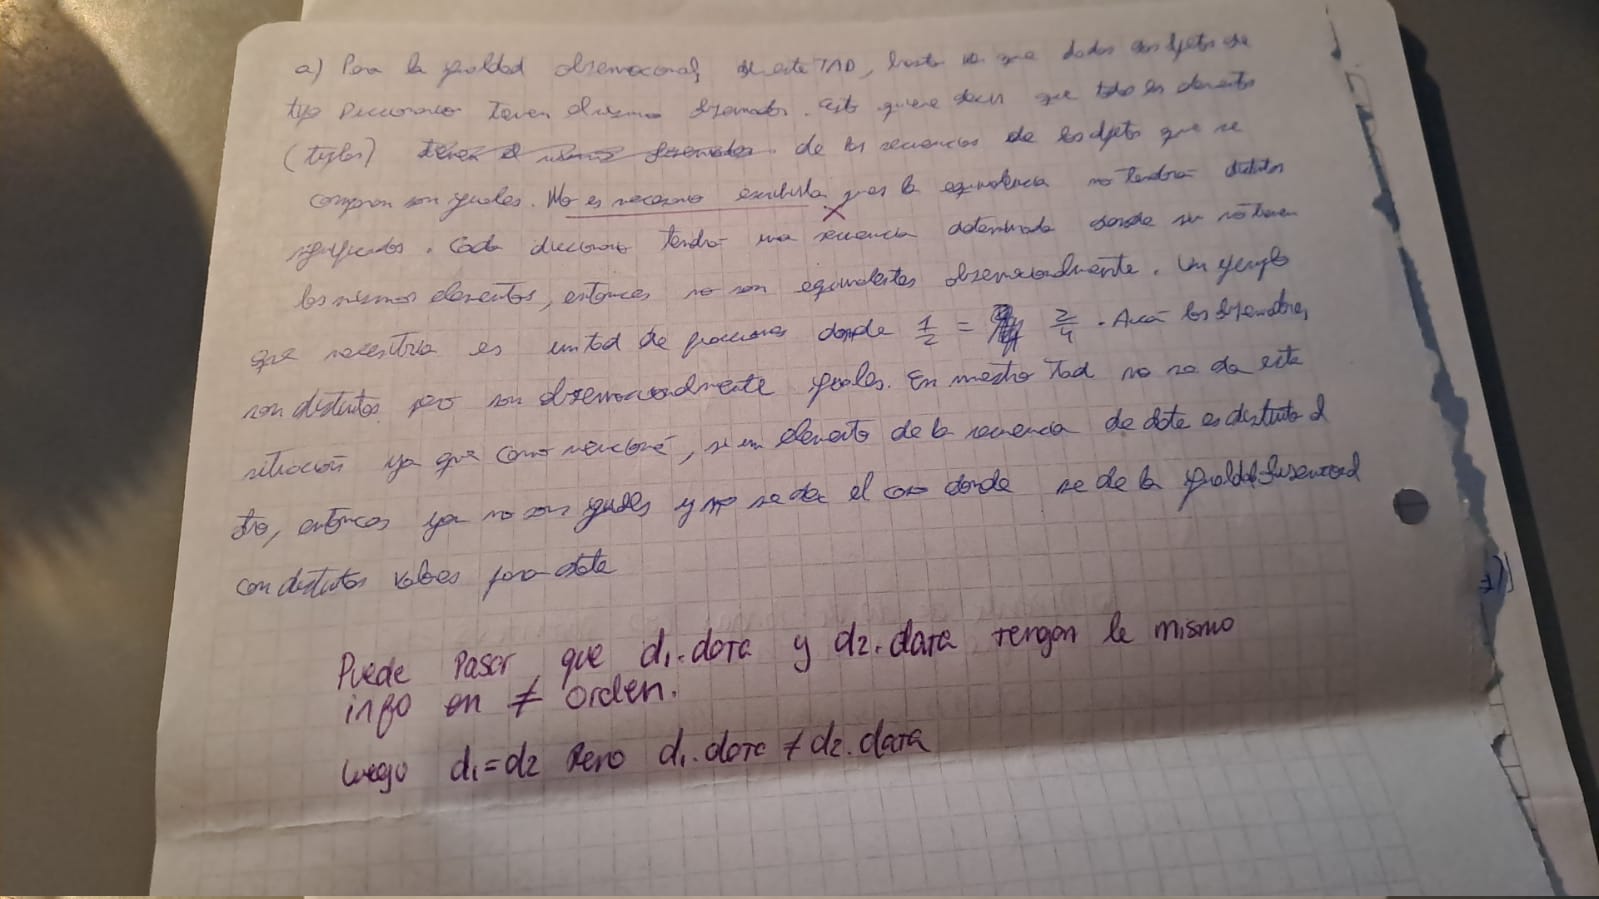 a) Para la igualdad observacional, de este TAD, basta ver que dados dos objetos de
tipo Diccionario tienen el mismo observador. esto quiere decir que todos los elementos
(tuplas) tienen el mismo observador. de las secuencias de los objetos que se
comparan son iguales. No es necesario escribirla pues la equivalencia no tendría distintos
significados. Cada diccionario tendrá una secuencia determinada donde si no tienen
los mismos elementos, entonces no son equivalentes observacionalmente. Un ejemplo
que necesitaría es un tad de fracciones donde 1/2 = 2/4. Acá los observadores,
son distintos pero son observacionalmente iguales. En nuestro Tad no se da esta
situación ya que como mencioné, si un elemento de la secuencia de data es distinto al
otro, entonces ya no son iguales y no se da el caso donde se de la igualdad observacional
con distintos valores para data
Puede pasar que d₁.data y d₂.data tengan la misma
info en ≠ orden.
Luego d₁=d₂ pero d₁.data ≠ d₂.data